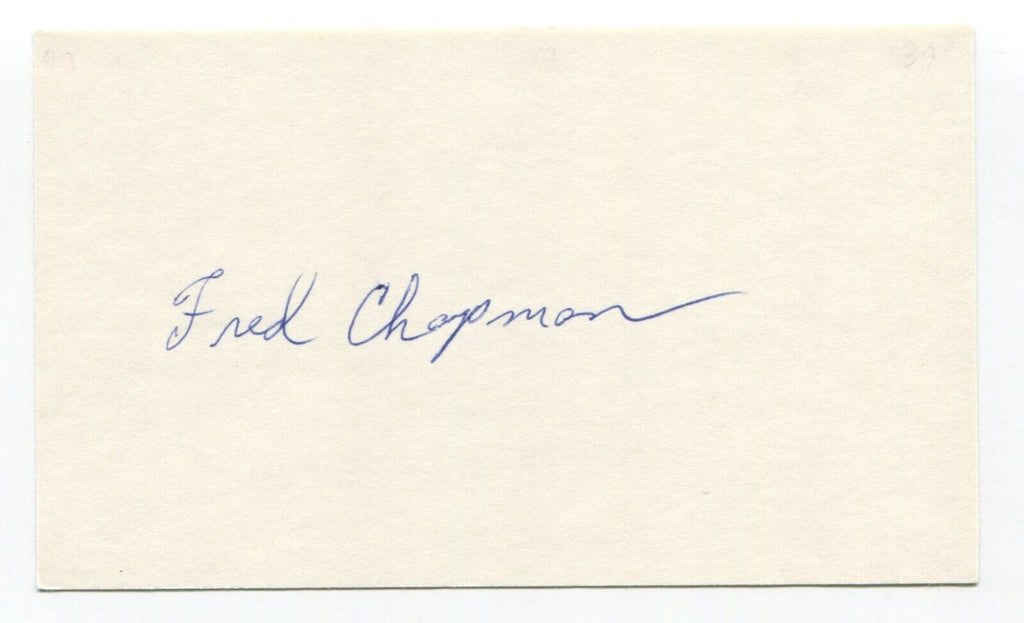 39
Fred Chapman